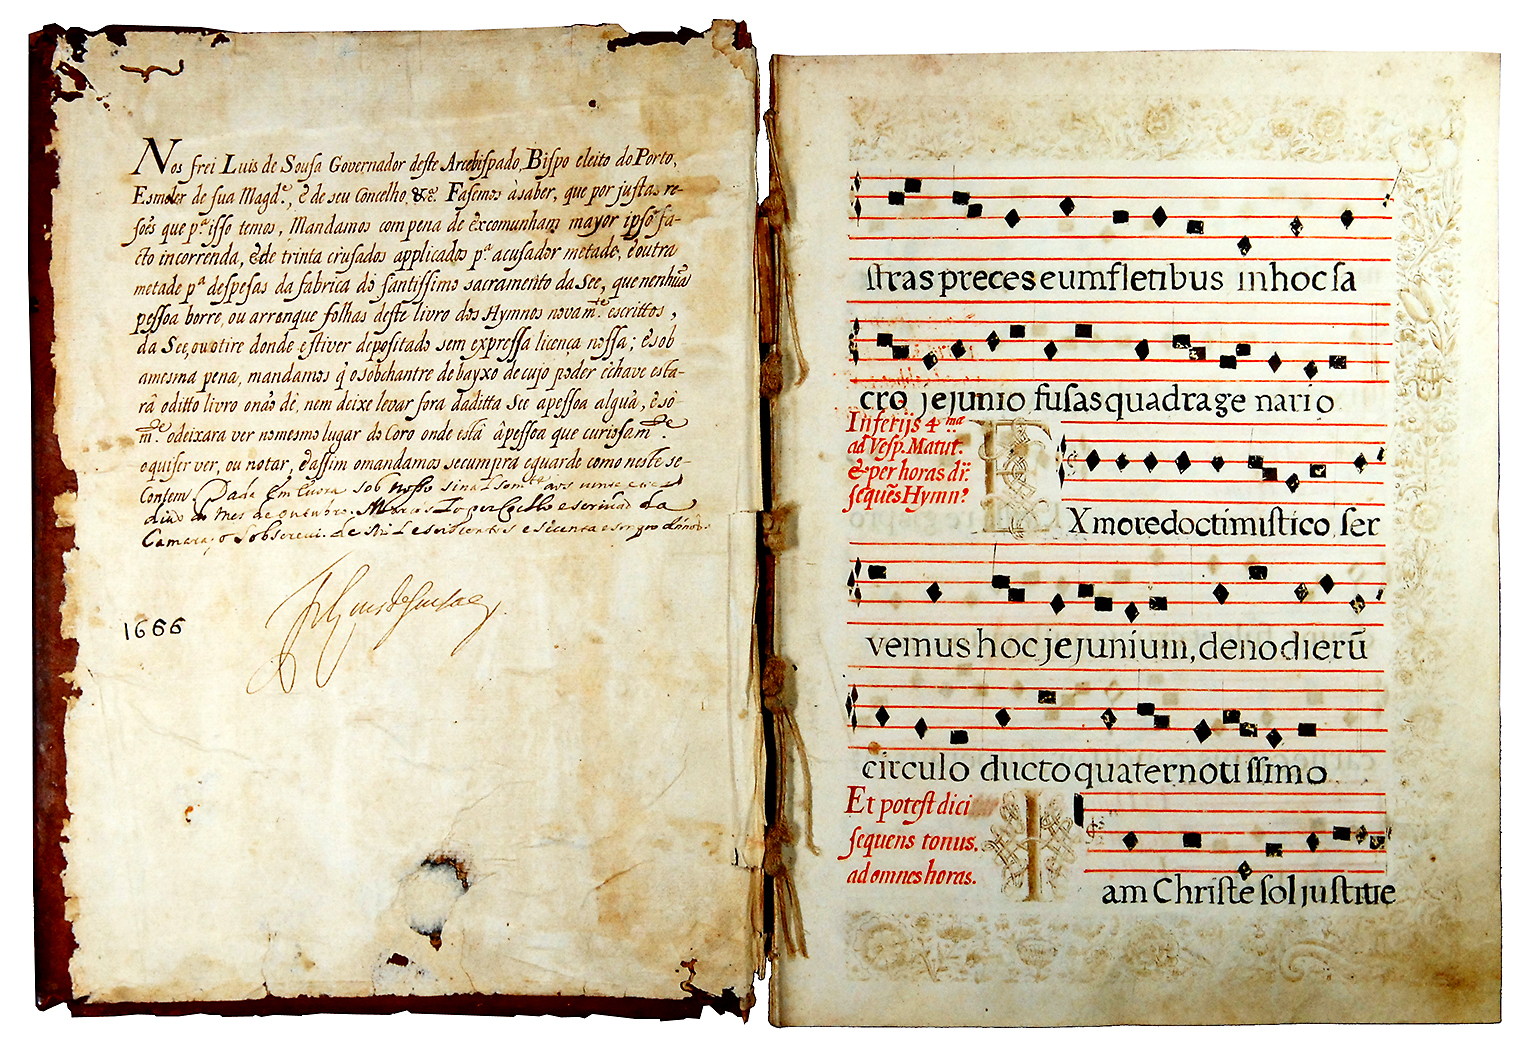 Nos frei Luis de Sousa Governador deste Arcebispado, Bispo eleito do Porto,
Esmoler de sua Magd.ᵉ, e de seu Concelho, &c. Fasemos àsaber, que por justas re-
soẽs que p.ᵃ isso temos, Mandamos com pena de excomunham mayor ipso fa-
cto incorrenda, e de trinta crusados applicados p.ᵃ acusador metade, e outra
metade p.ᵃ despesas da fabrica do santissimo sacramento da See, que nenhuã
pessoa borre, ou arranque folhas deste livro dos Hymnos novam.ᵗᵉ escrittos,
da See, ou otire donde estiver depositado sem expressa licença nossa; e sob
amesma pena, mandamos q̃ o sobchantre de bayxo de cujo poder e chave esta-
rà oditto livro onaõ dè, nem deixe levar fora daditta See apessoa alguã, e sò
m.ᵗᵉ odeixara ver nomesmo lugar do Coro onde està âpessoa que curiosam.ᵗᵉ
oquiser ver, ou notar, e assim omandamos secumpra eguarde como neste se-
Contem. Dada em Evora sob nosso sinal som.ᵗᵉ aos vinte
do mes de outubro. Marcos Lopez Coelho escrivão da
Camara, o sobscrevi. de Mil e seis centos e secenta e
Fr Luis de Sousa
1666
stras preces eum fletibus in hoc sa
cro jejunio fusas quadrage nario
In ferijs 4.ᵐᵃ
ad Vesp. Matut.
& per horas dr̃.
sequẽs Hymn⁹
EX more docti mistico, ser
vemus hoc jejunium, deno dierũ
circulo ducto quater notissimo
Et potest dici
sequens tonus,
ad omnes horas.
Iam Christe sol justitie